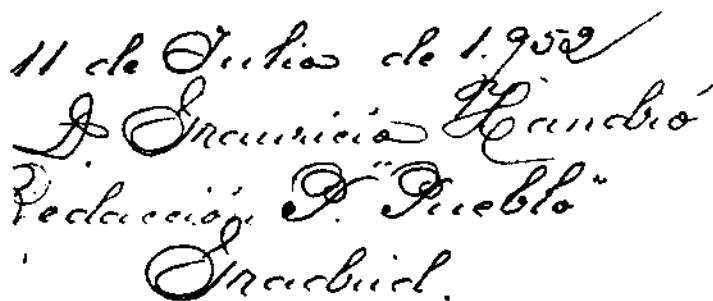 11 de Julio de 1.952
D. Mauricio Handró
Redacción P. "Pueblo"
Madrid.